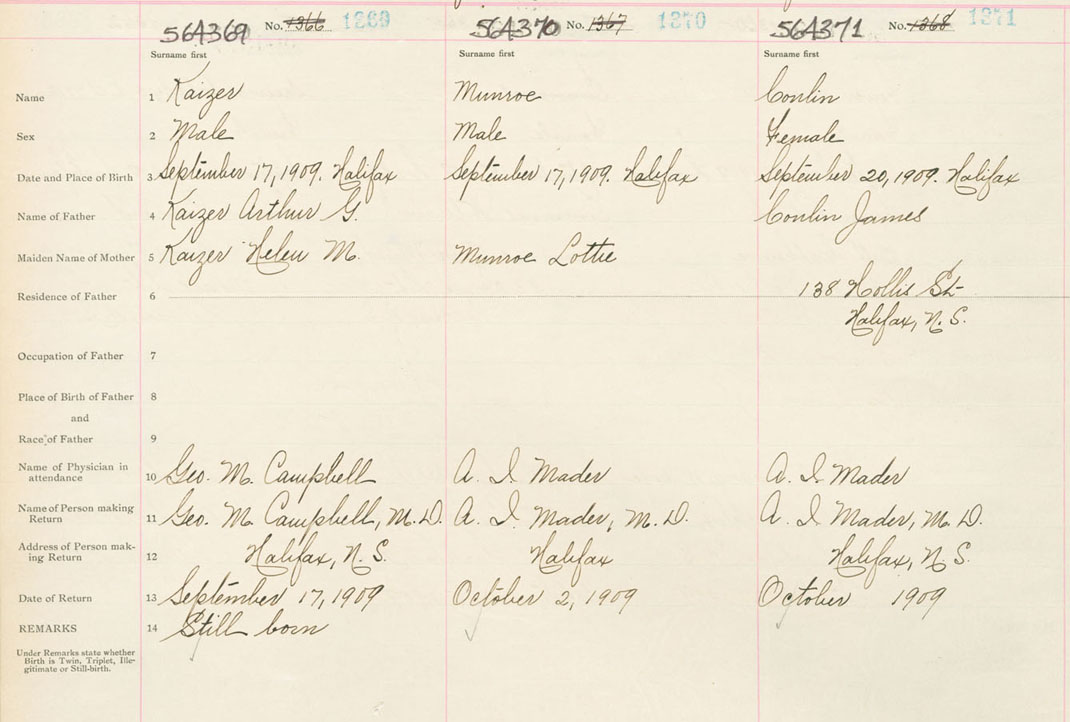 564369 No. 1366 1369
564370 No. 1367 1370
564371 No. 1368 1371
Surname first Surname first Surname first
Name 1 Kaizer Munroe Conlin
Sex 2 Male Male Female
Date and Place of Birth 3 September 17, 1909. Halifax September 17, 1909. Halifax September 20, 1909. Halifax
Name of Father 4 Kaizer Arthur G. Conlin James
Maiden Name of Mother 5 Kaizer Helen M. Munroe Lottie
Residence of Father 6 138 Hollis St
Halifax, N. S.
Occupation of Father 7
Place of Birth of Father 8
and
Race of Father 9
Name of Physician in
attendance 10 Geo. M. Campbell A. I. Mader A. I. Mader
Name of Person making
Return 11 Geo. M. Campbell, M.D. A. I. Mader, M.D. A. I. Mader, M.D.
Address of Person mak-
ing Return 12 Halifax, N. S. Halifax Halifax, N. S.
Date of Return 13 September 17, 1909 October 2, 1909 October 1909
REMARKS 14 Still born
Under Remarks state whether
Birth is Twin, Triplet, Ille-
gitimate or Still-birth.